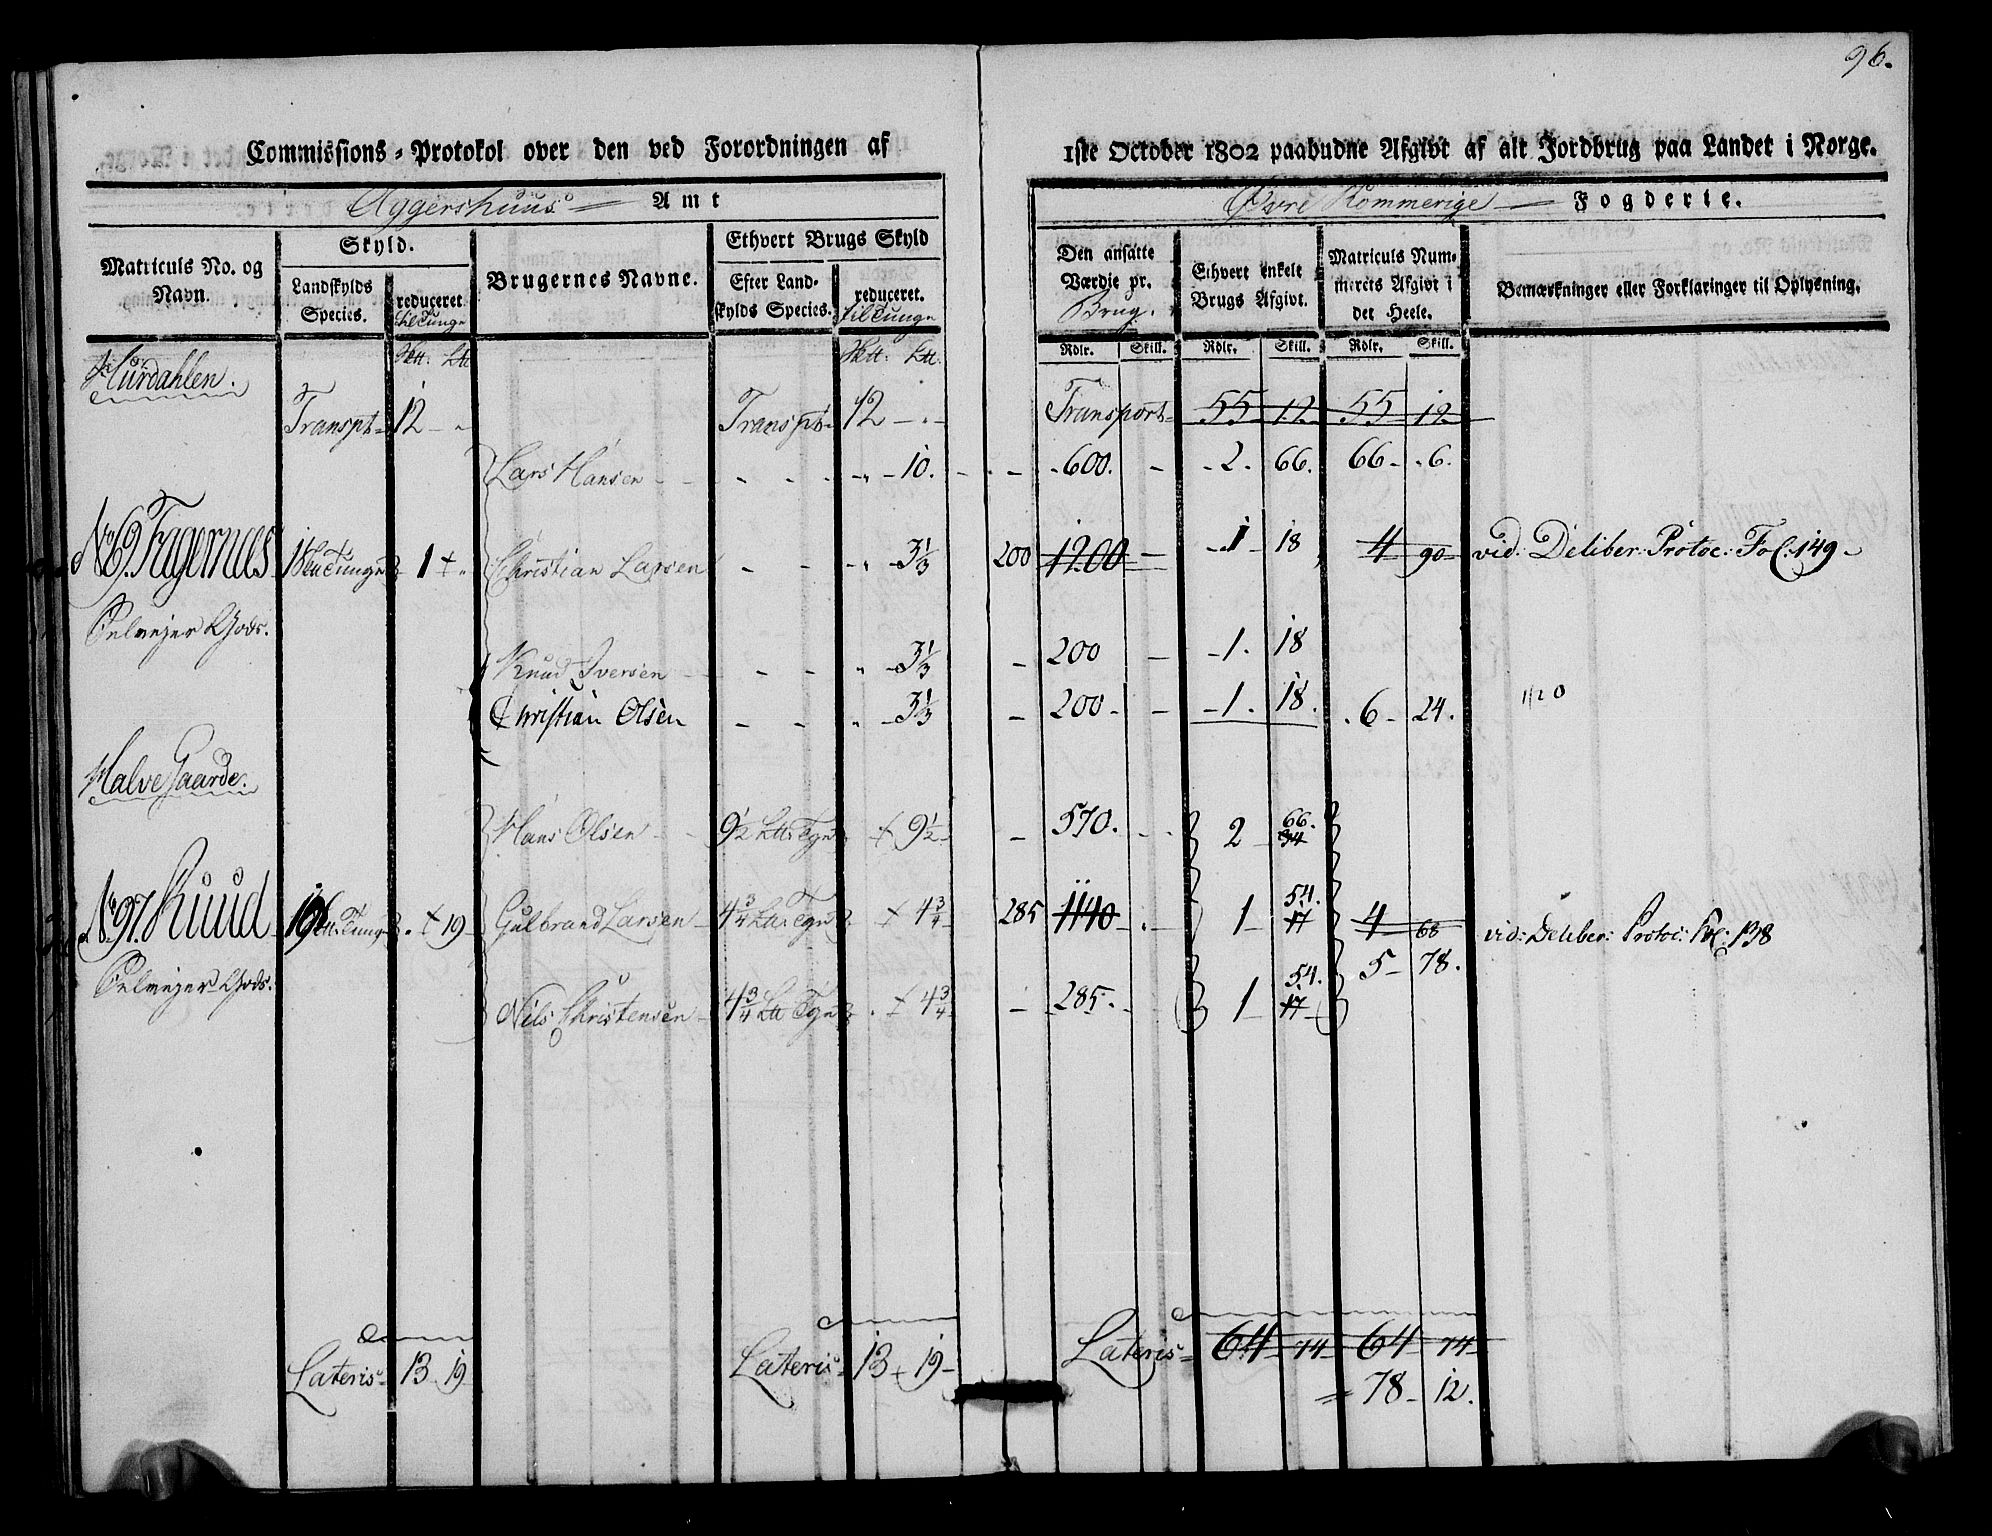 96.
Commissions-Protokol over den ved Forordningen af 1ste October 1802 paabudne Afgivt af alt Jordbrug paa Landet i Norge.
Aggershuus Amt
Øvre Rommerige Fogderie.
Matriculs No. og Navn.
Skyld.
Landskylds Species.
reduceret til Tunge
Brugernes Navne.
Ethvert Brugs Skyld
Efter Landskylds Species.
reduceret. til Tunge
Den ansatte Værdie pr. Brug.
Ethvert enkelt Brugs Afgivt.
Matriculs Nummerets Afgivt i det Heele.
Bemærkninger eller Forklaringer til Oplysning.
Rdlr. Skill. Rdlr. Skill. Rdlr. Skill.
Hurdahlen.
Transpt 12 - " Transpt 12 - " - Transport 55 12 55 12
Lars Hansen - - - " - 10. - 600. - 2. 66. 66 - 6.
No 69. Fagernæs 1 1 + " Christian Larsen - - " - 3 1/3 200 1200 - 1 - 18 4 90 vid: Deliber: Protoc: Fol: 149 -
Selvejer Gods.
Knud Iversen - - " - 3 1/3 - 200 - 1. 18
Christian Olsen - - " - 3 1/3 - 200 - - 1. 18. 6 - 24.
1/20
Halve Gaarde.
Hans Olsen - 9 1/2 Ltt: Tgn + 9 1/2 - 570. - 2 66. 34
No 97. Ruud 19 + 19 - Gulbrand Larsen - 4 3/4 Ltt: Tgn + 4 3/4 285 1140 - 1 - 54. 17 4 68 vid: Deliber: Protoc: Fol: 138
5 - 78.
Selvejer Gods.
Nils Christensen - 4 3/4 Ltt Tgn + 4 3/4 - 285. - 1 - 54. 17
Lateris 13 - 19 Lateris 13 + 19 - Lateris 64 - 74 - 64 74
78 - 12.